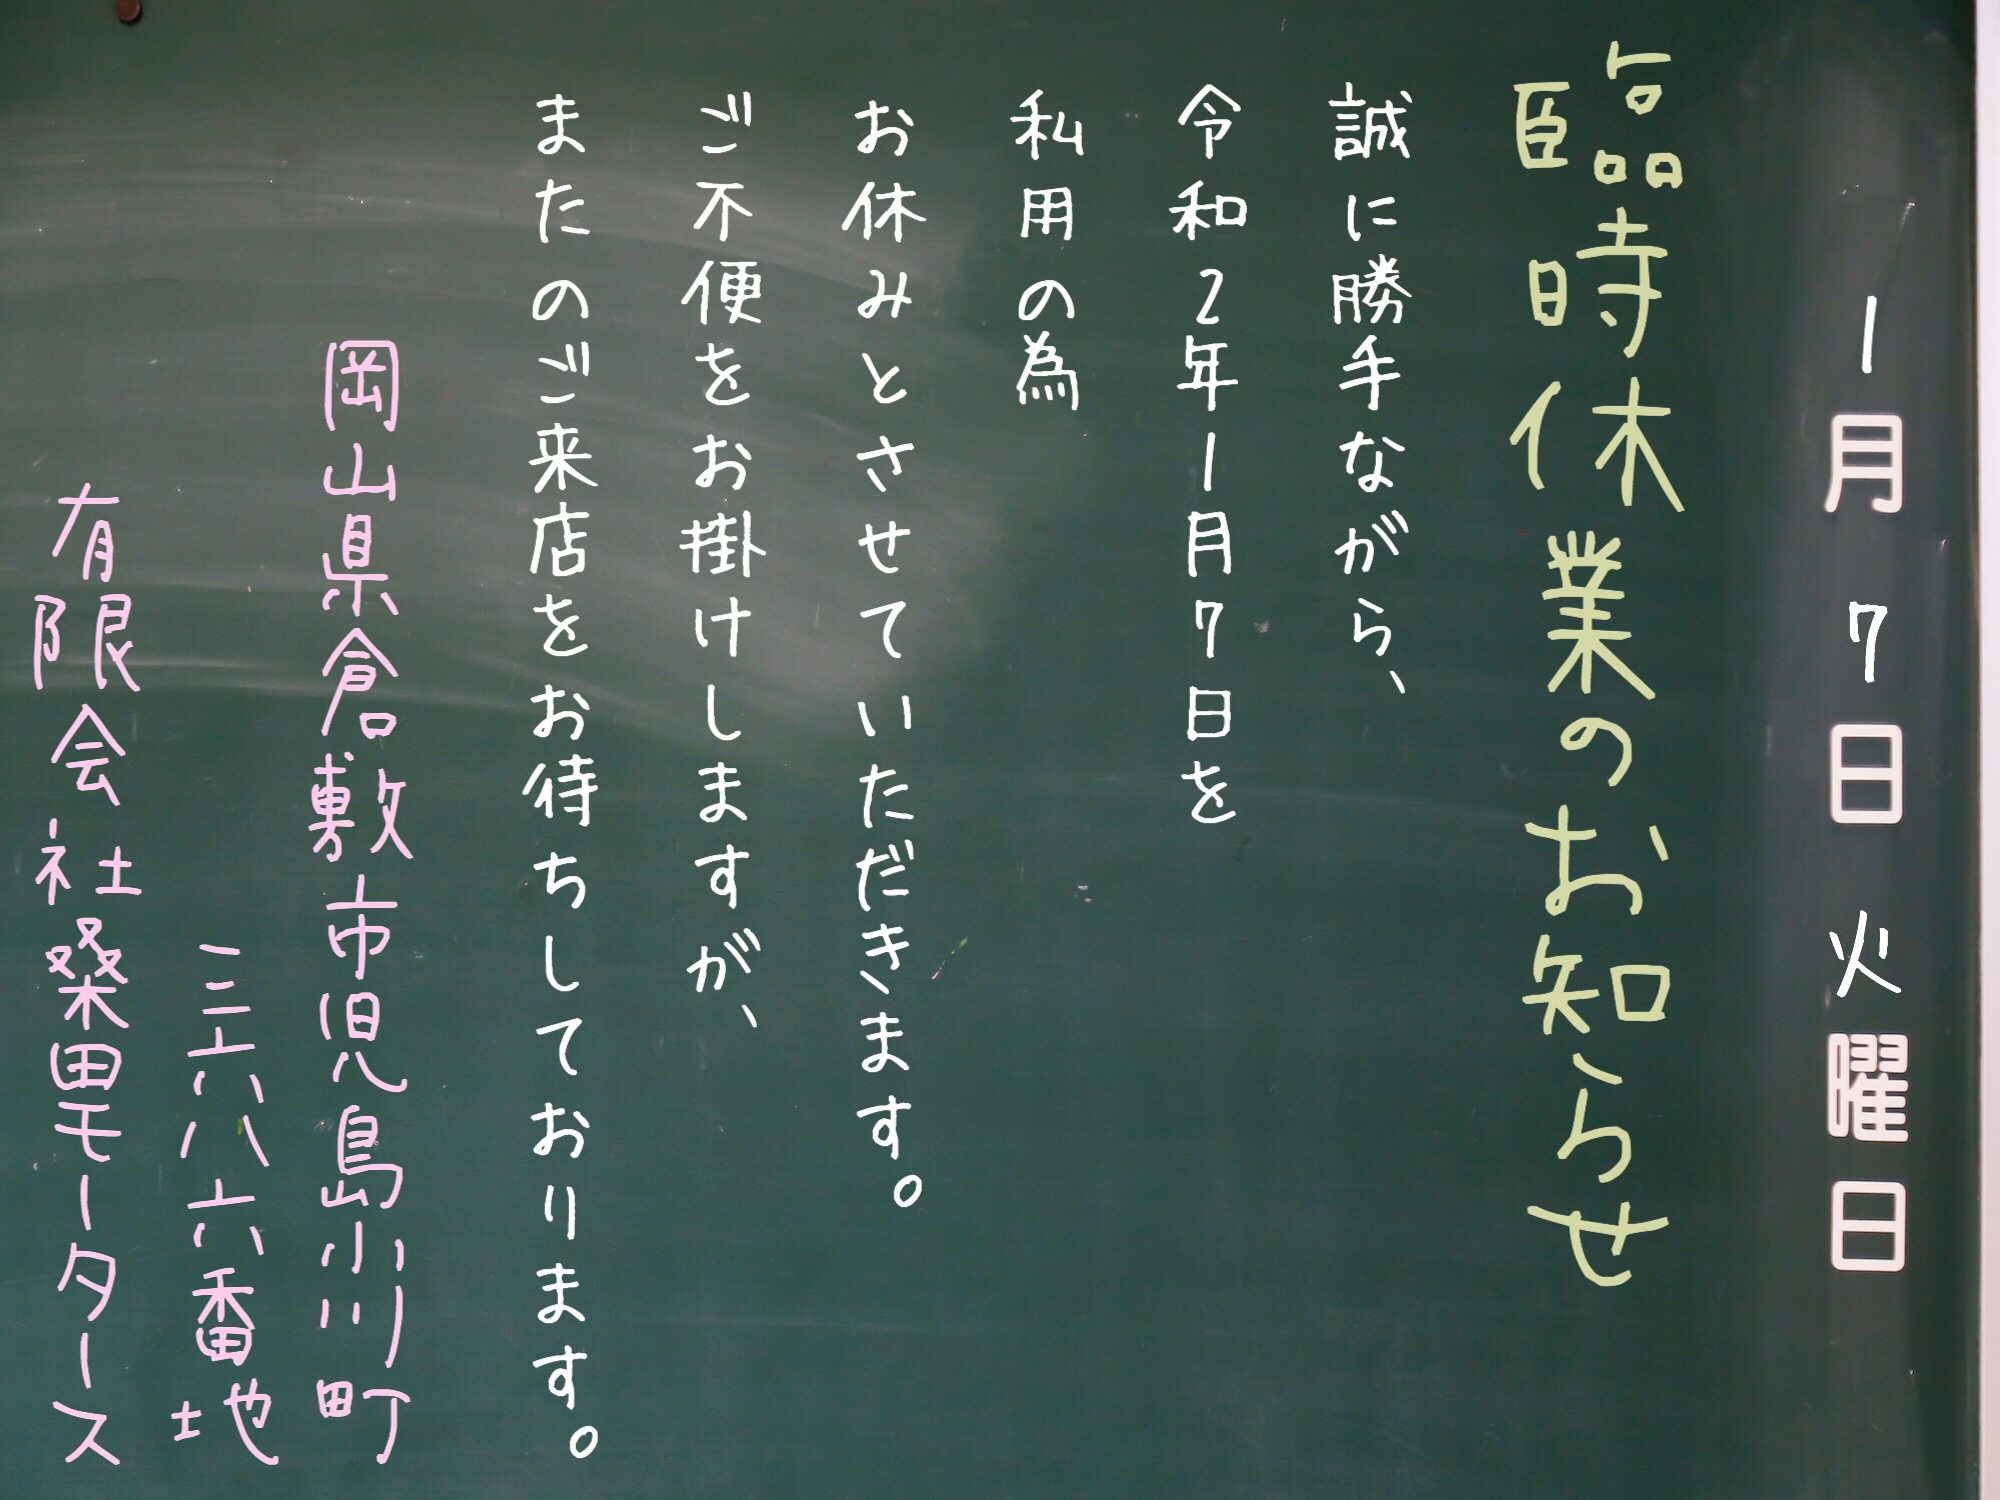 1月7日火曜日
臨時休業のお知らせ
誠に勝手ながら、
令和2年1月7日を
私用の為
お休みとさせていただきます。
ご不便をお掛けしますが、
またのご来店をお待ちしております。
岡山県倉敷市児島小川町
三六八六番地
有限会社桑田モータース